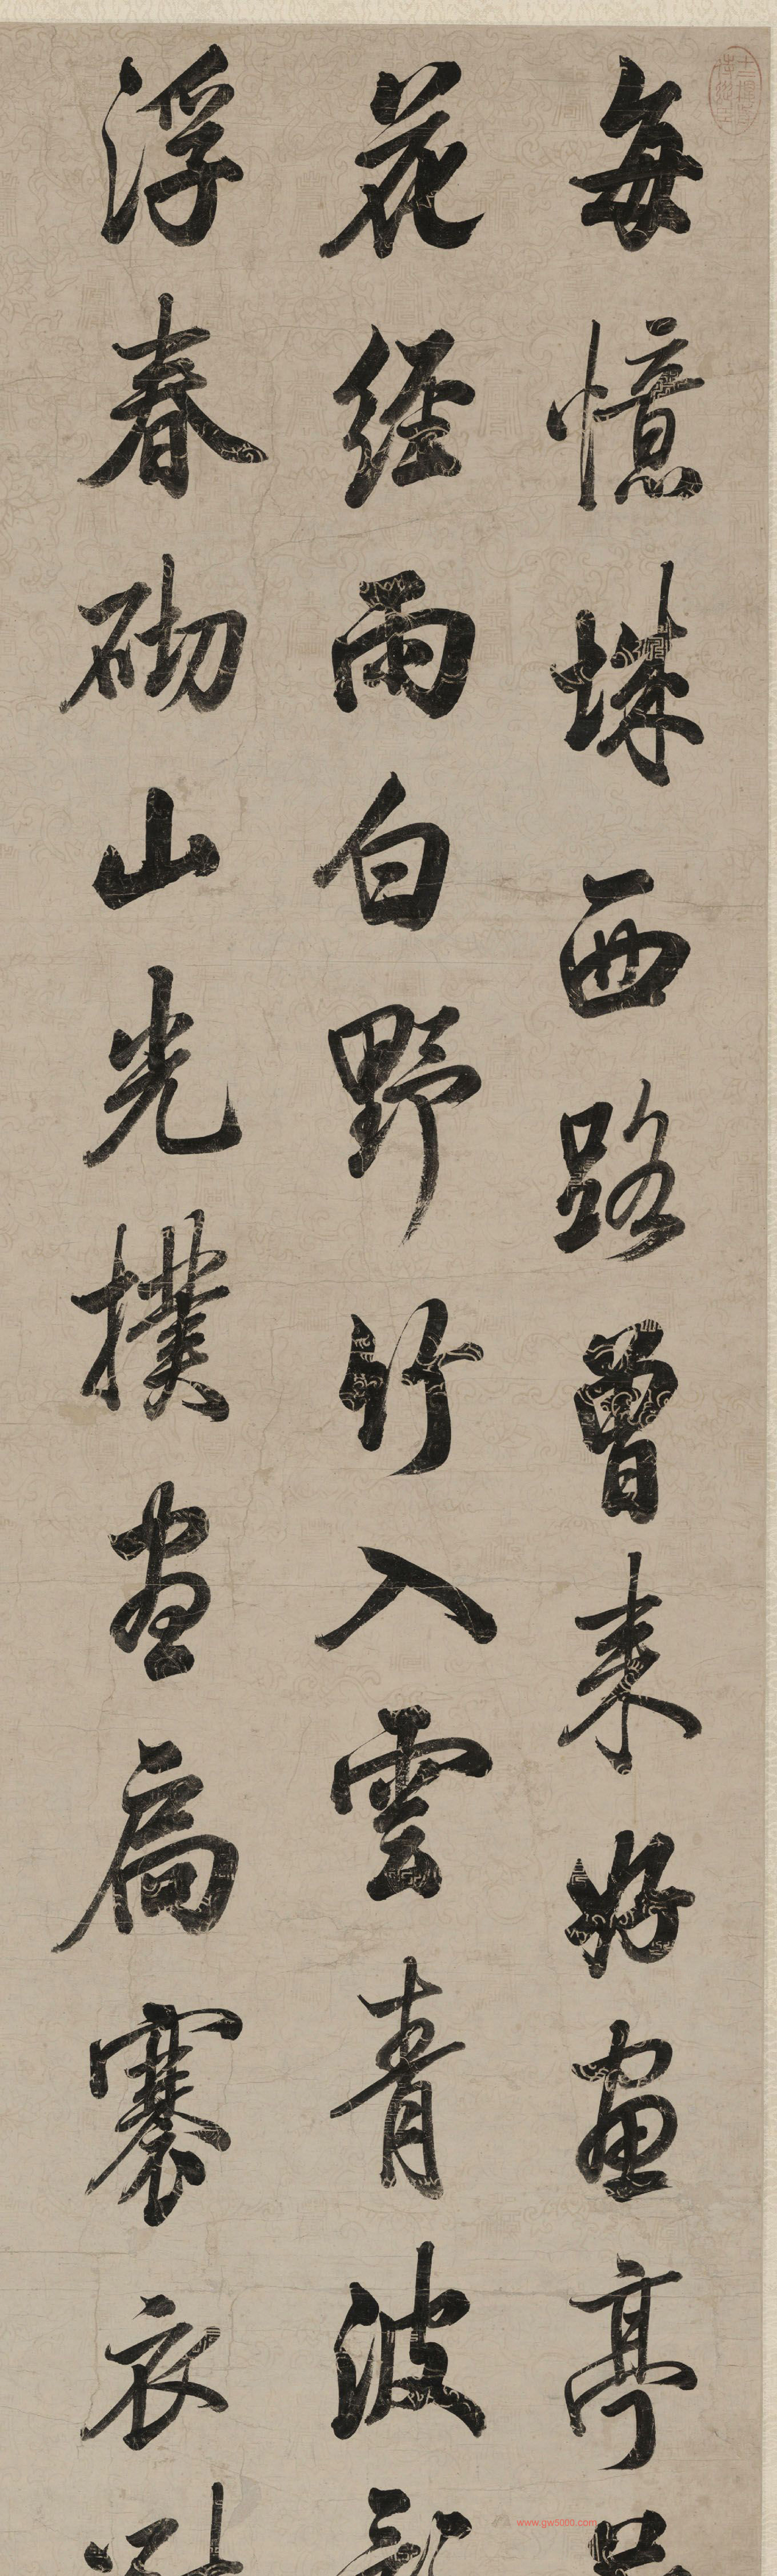 每憶城西路曾來好畫亭
花經雨白野竹入雲青波
浮春砌山光撲畫扃褰衣
www.gw5000.com